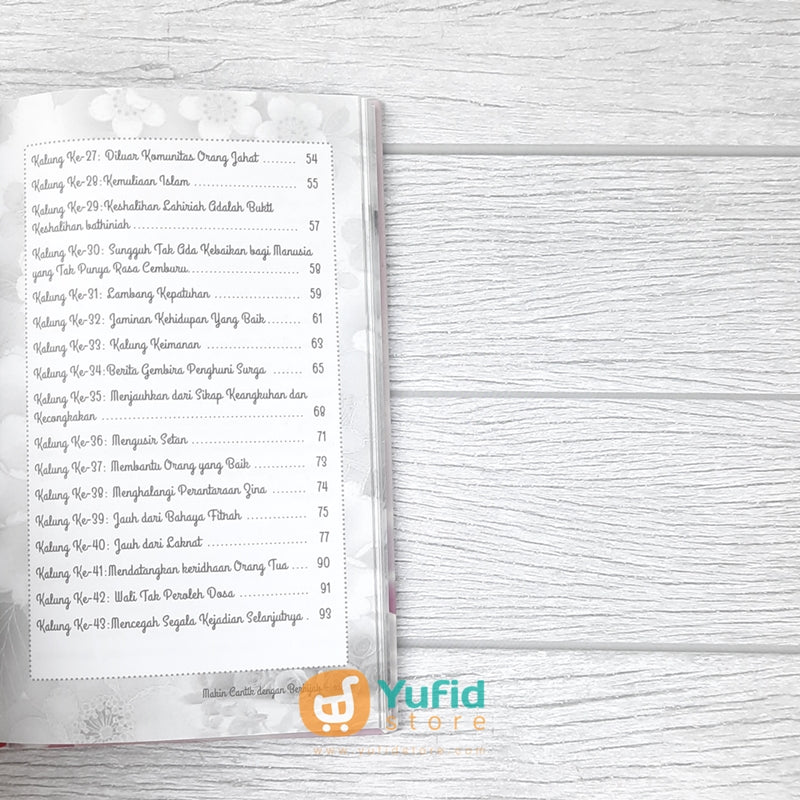 Kalung Ke-27: Diluar Komunitas Orang Jahat ........ 54
Kalung Ke-28: Kemuliaan Islam ........................ 55
Kalung Ke-29: Keshalihan Lahiriah Adalah Bukti
Keshalihan bathiniah ........................................ 57
Kalung Ke-30: Sungguh Tak Ada Kebaikan bagi Manusia
yang Tak Punya Rasa Cemburu........................... 58
Kalung Ke-31: Lambang Kepatuhan .................... 59
Kalung Ke-32: Jaminan Kehidupan Yang Baik........ 61
Kalung Ke-33: Kalung Keimanan ...................... 63
Kalung Ke-34: Berita Gembira Penghuni Surga ...... 65
Kalung Ke-35: Menjauhkan dari Sikap Keangkuhan dan
Kecongkakan ................................................ 68
Kalung Ke-36: Mengusir Setan ........................ 71
Kalung Ke-37: Membantu Orang yang Baik ........... 73
Kalung Ke-38: Menghalangi Perantaraan Zina ........ 74
Kalung Ke-39: Jauh dari Bahaya Fitnah .............. 75
Kalung Ke-40: Jauh dari Laknat ...................... 77
Kalung Ke-41: Mendatangkan keridhaan Orang Tua .... 90
Kalung Ke-42: Wali Tak Peroleh Dosa ................ 91
Kalung Ke-43: Mencegah Segala Kejadian Selanjutnya . 93
Makin Cantik dengan Berhijab
Yufid
store
www.yufidstore.com